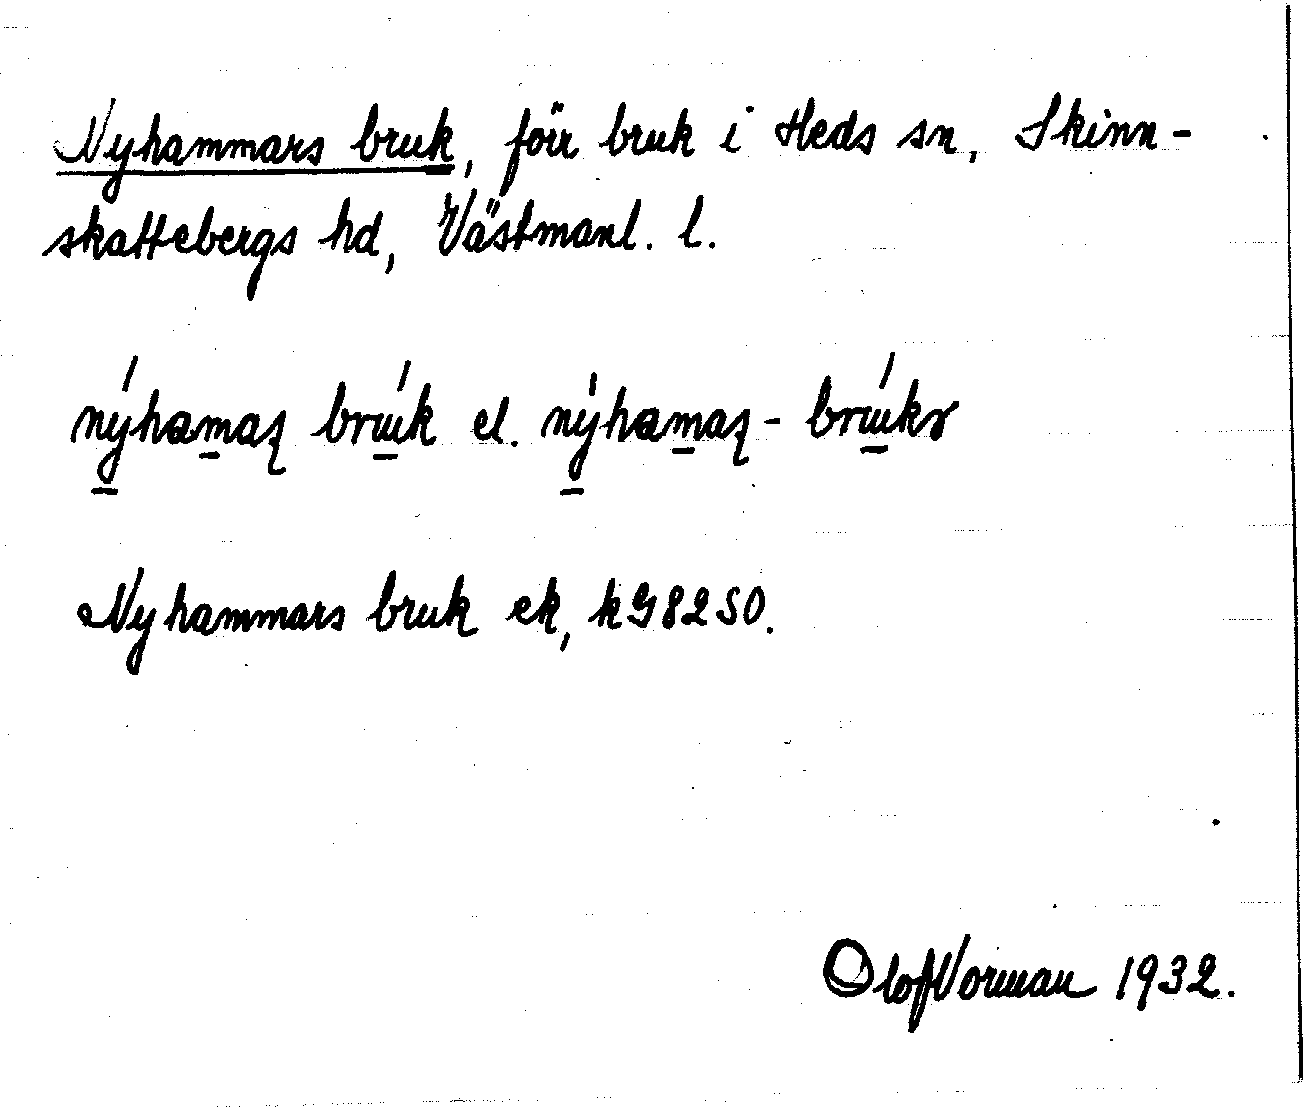 Nyhammars bruk, förr bruk i Heds sn, Skinn-
skattebergs hd, Västmanl. l.
nýhamaʂ brúk el. nýhamaʂ-brúkə
Nyhammars bruk ek, kG8250.
Olof Vorman 1932.